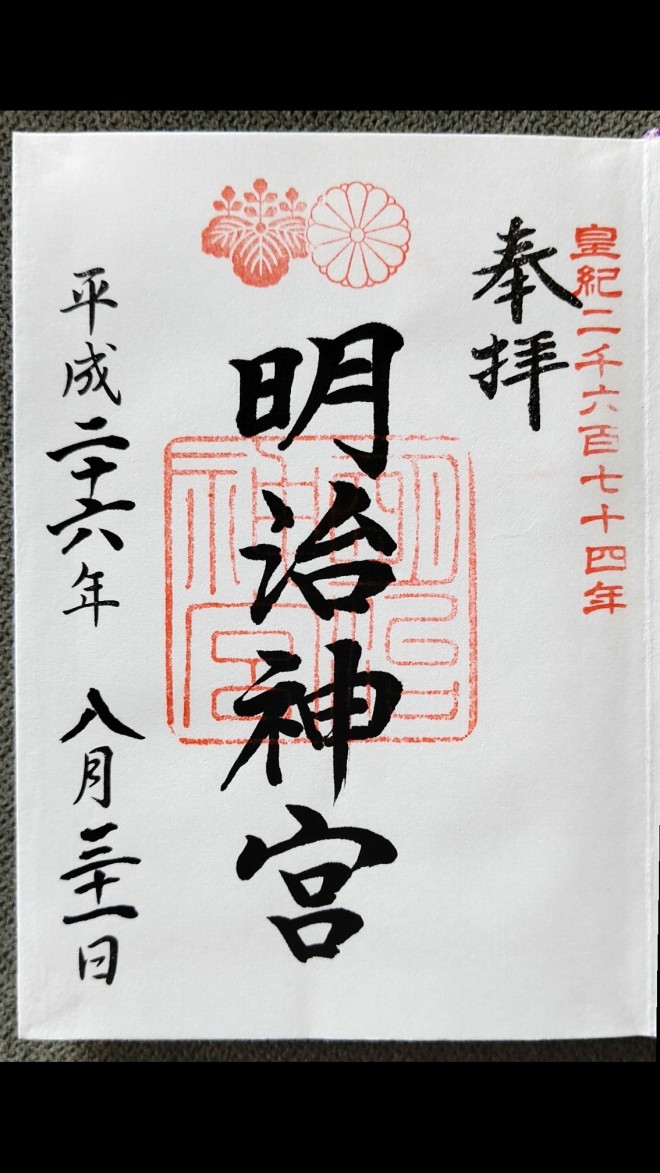 皇紀二千六百七十四年
奉拝
明治神宮
明治神宮
平成二十六年 八月三十一日